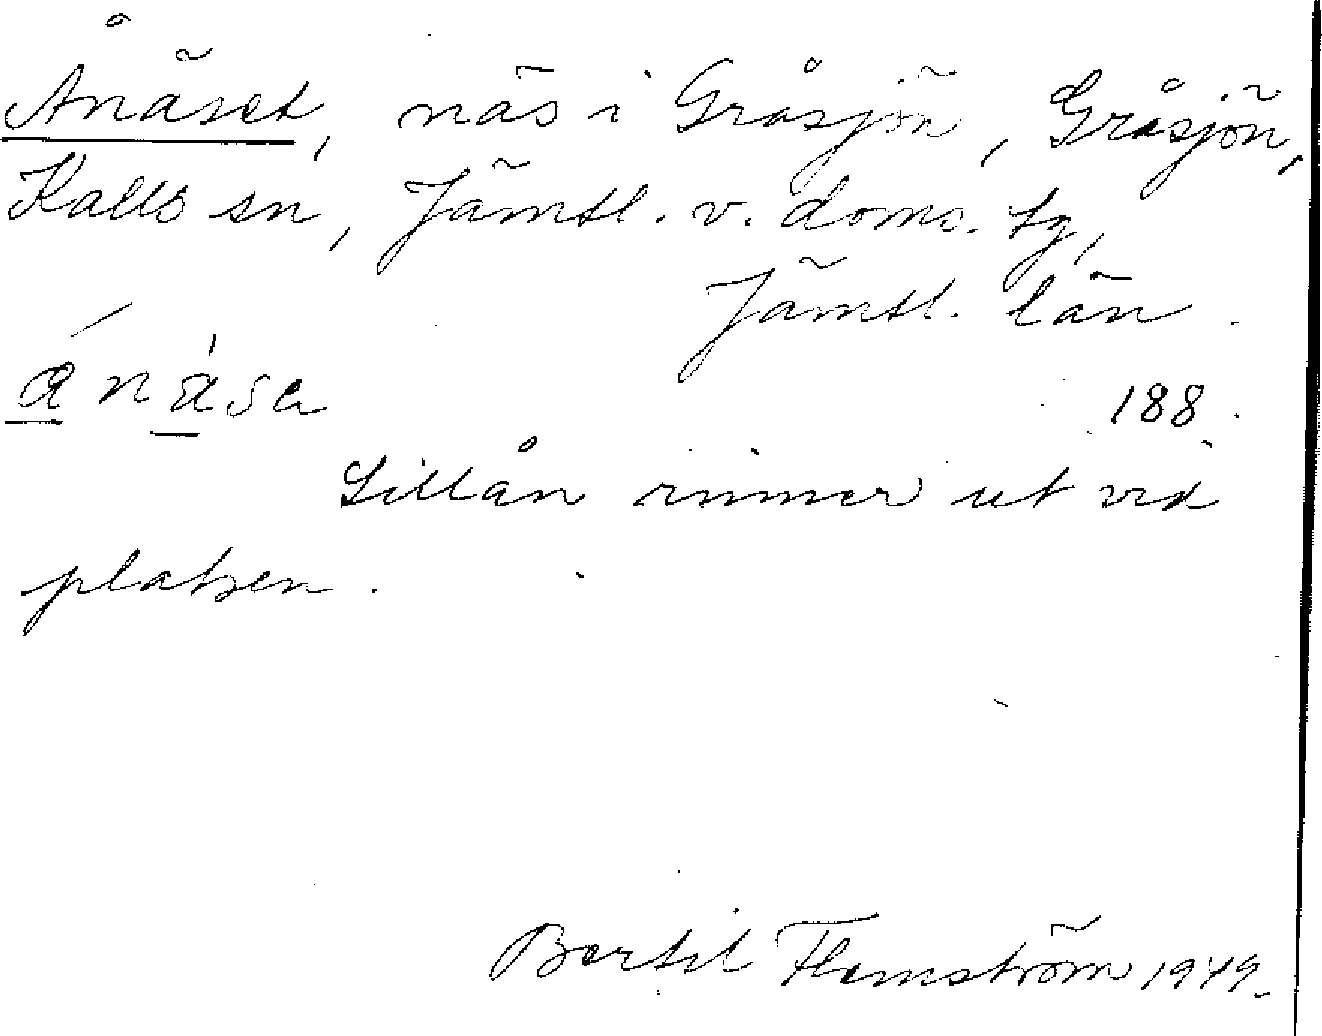 Ånäset, näs i Gråsjön, Gråsjön,
Kalls sn, Jämtl. v. doms. tg,
Jämtl. län.
ánàsa
188.
Lillån rinner ut vid
platsen.
Bertil Flemström 1949.